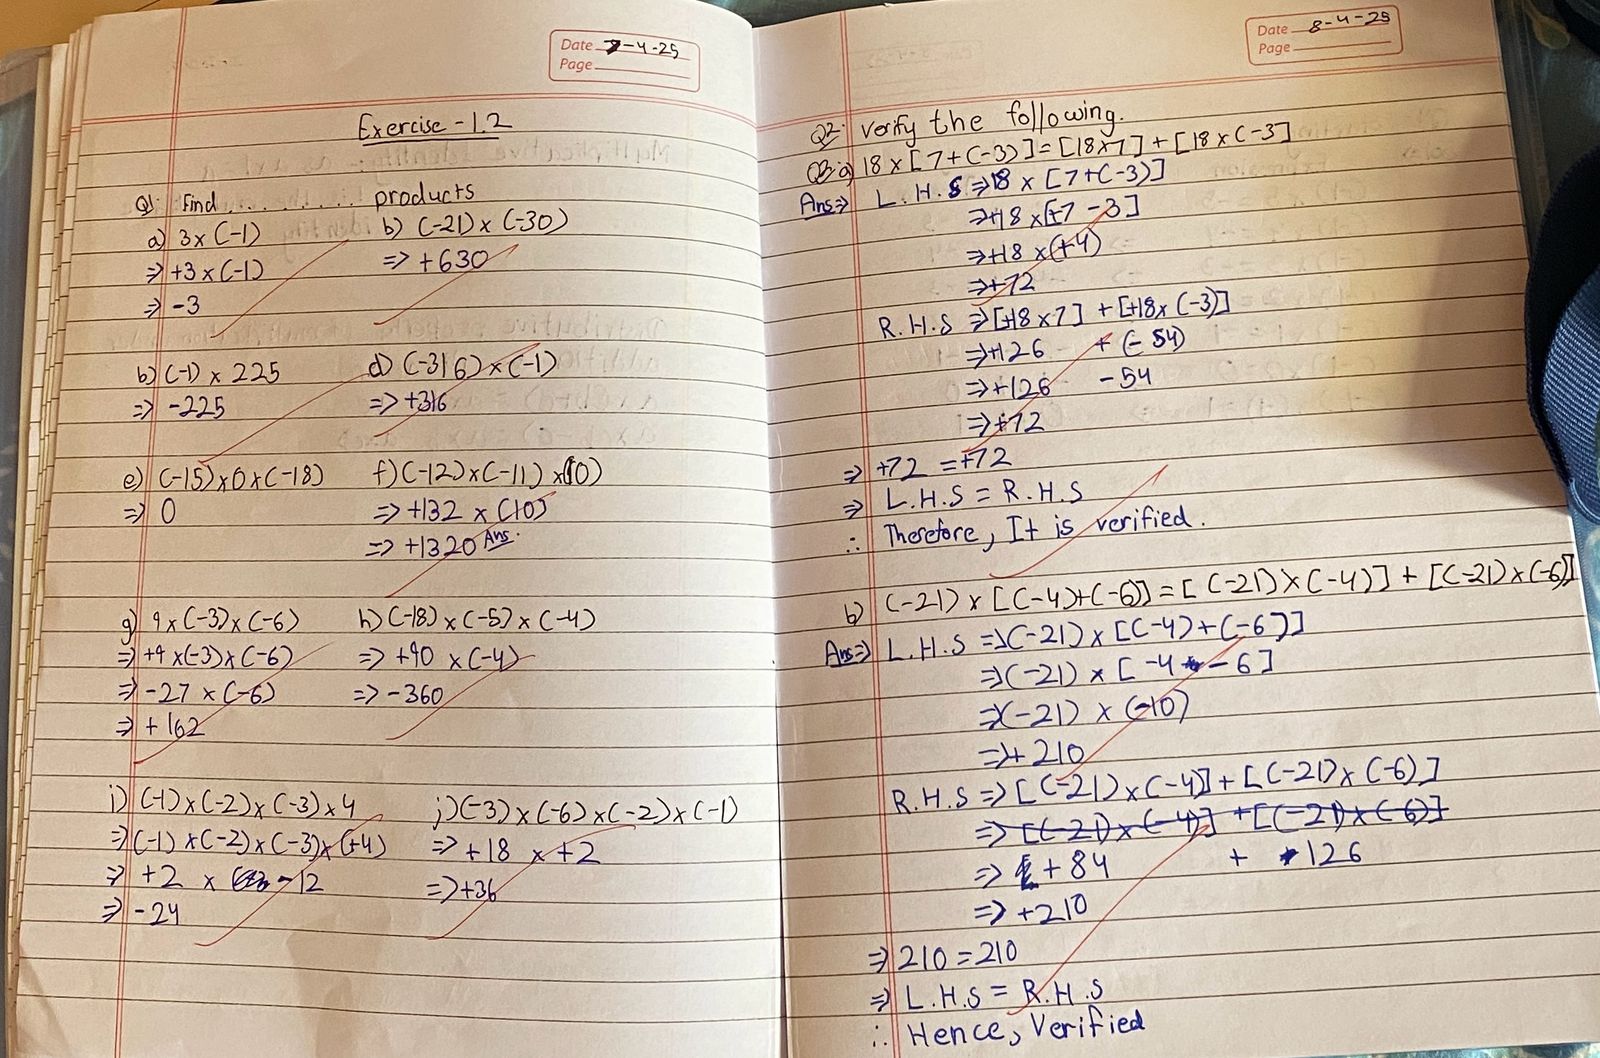 Date 7-4-25
Page
Exercise - 1.2
Q1: Find . . . . . . . . . . products
a) 3 x (-1)
⇒ +3 x (-1)
⇒ -3
b) (-21) x (-30)
⇒ +630
b) (-1) x 225
⇒ -225
d) (-316) x (-1)
⇒ +316
e) (-15) x 0 x (-18)
⇒ 0
f) (-12) x (-11) x (10)
⇒ +132 x (10)
⇒ +1320 Ans.
g) 9 x (-3) x (-6)
⇒ +9 x (-3) x (-6)
⇒ -27 x (-6)
⇒ +162
h) (-18) x (-5) x (-4)
⇒ +90 x (-4)
⇒ -360
i) (-1) x (-2) x (-3) x 4
⇒ (-1) x (-2) x (-3) x (+4)
⇒ +2 x -12
⇒ -24
j) (-3) x (-6) x (-2) x (-1)
⇒ +18 x +2
⇒ +36
Date 8-4-25
Page
Q2: Verify the following.
a) 18 x [7 + (-3)] = [18 x 7] + [18 x (-3]
Ans ⇒ L.H.S ⇒ 18 x [7 + (-3)]
⇒ +18 x [+7 - 3]
⇒ +18 x (+4)
⇒ +72
R.H.S ⇒ [+18 x 7] + [+18 x (-3)]
⇒ +126 + (- 54)
⇒ +126 - 54
⇒ +72
⇒ +72 = +72
⇒ L.H.S = R.H.S
∴ Therefore, It is verified.
b) (-21) x [(-4) + (-6)] = [(-21) x (-4)] + [(-21) x (-6)]
Ans ⇒ L.H.S ⇒ (-21) x [(-4) + (-6)]
⇒ (-21) x [-4 - 6]
⇒ (-21) x (-10)
⇒ + 210
R.H.S ⇒ [(-21) x (-4)] + [(-21) x (-6)]
⇒ [(-21) x (-4)] + [(-21) x (-6)]
⇒ + 84 + 126
⇒ +210
⇒ 210 = 210
⇒ L.H.S = R.H.S
∴ Hence, Verified